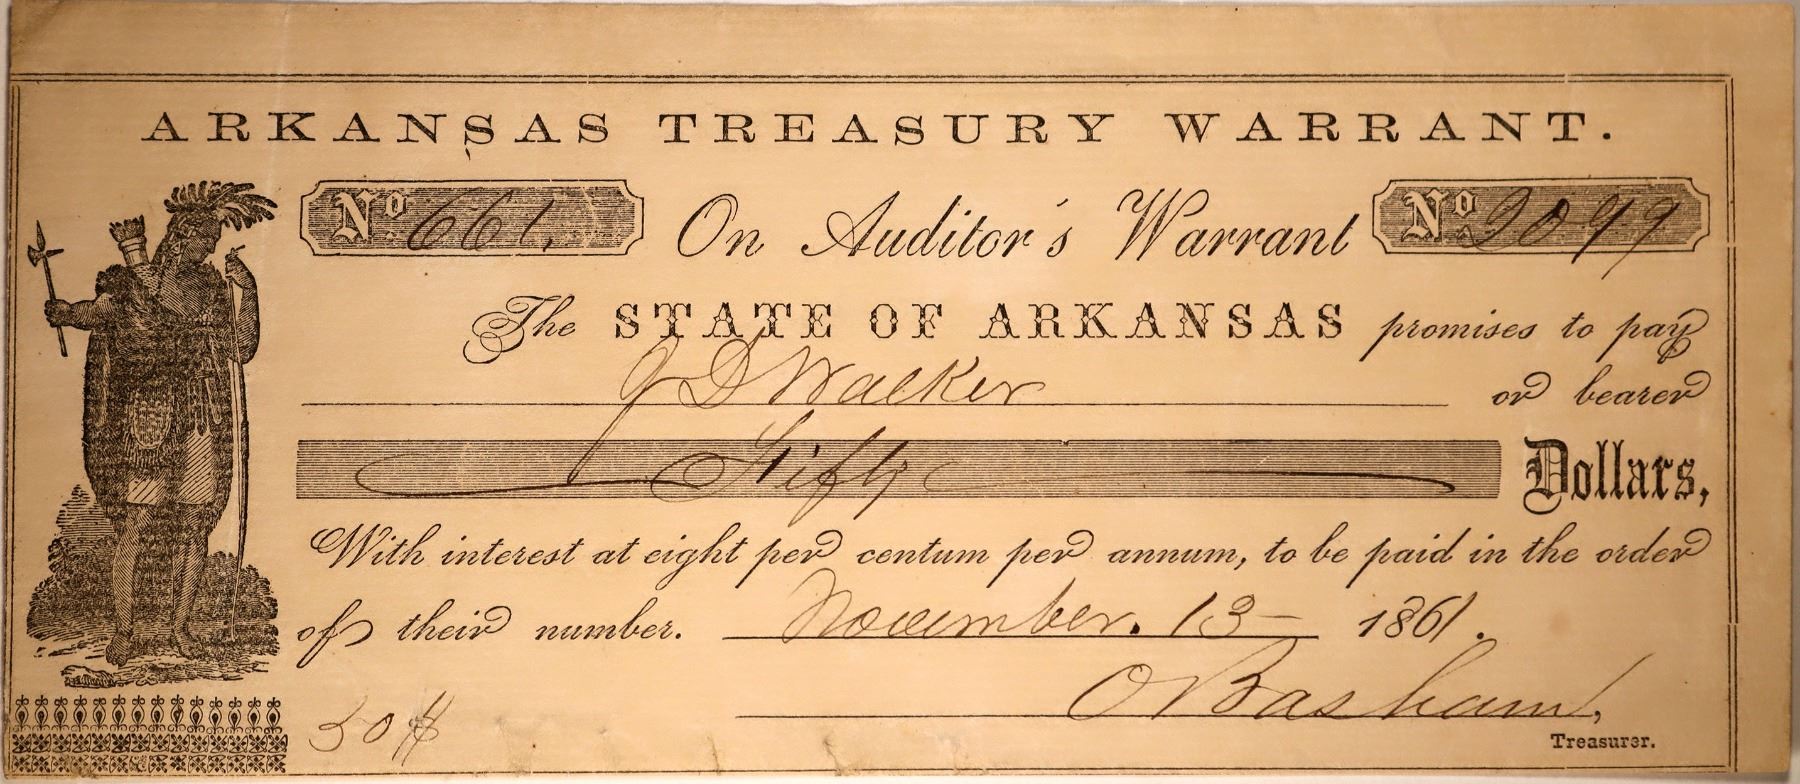 ARKANSAS TREASURY WARRANT.
No. 661. On Auditor's Warrant No. 2099
The STATE OF ARKANSAS promises to pay
J D Walker or bearer
Fifty Dollars,
With interest at eight per centum per annum, to be paid in the order
of their number. November. 13 - 1861.
50 $ O Basham,
Treasurer.